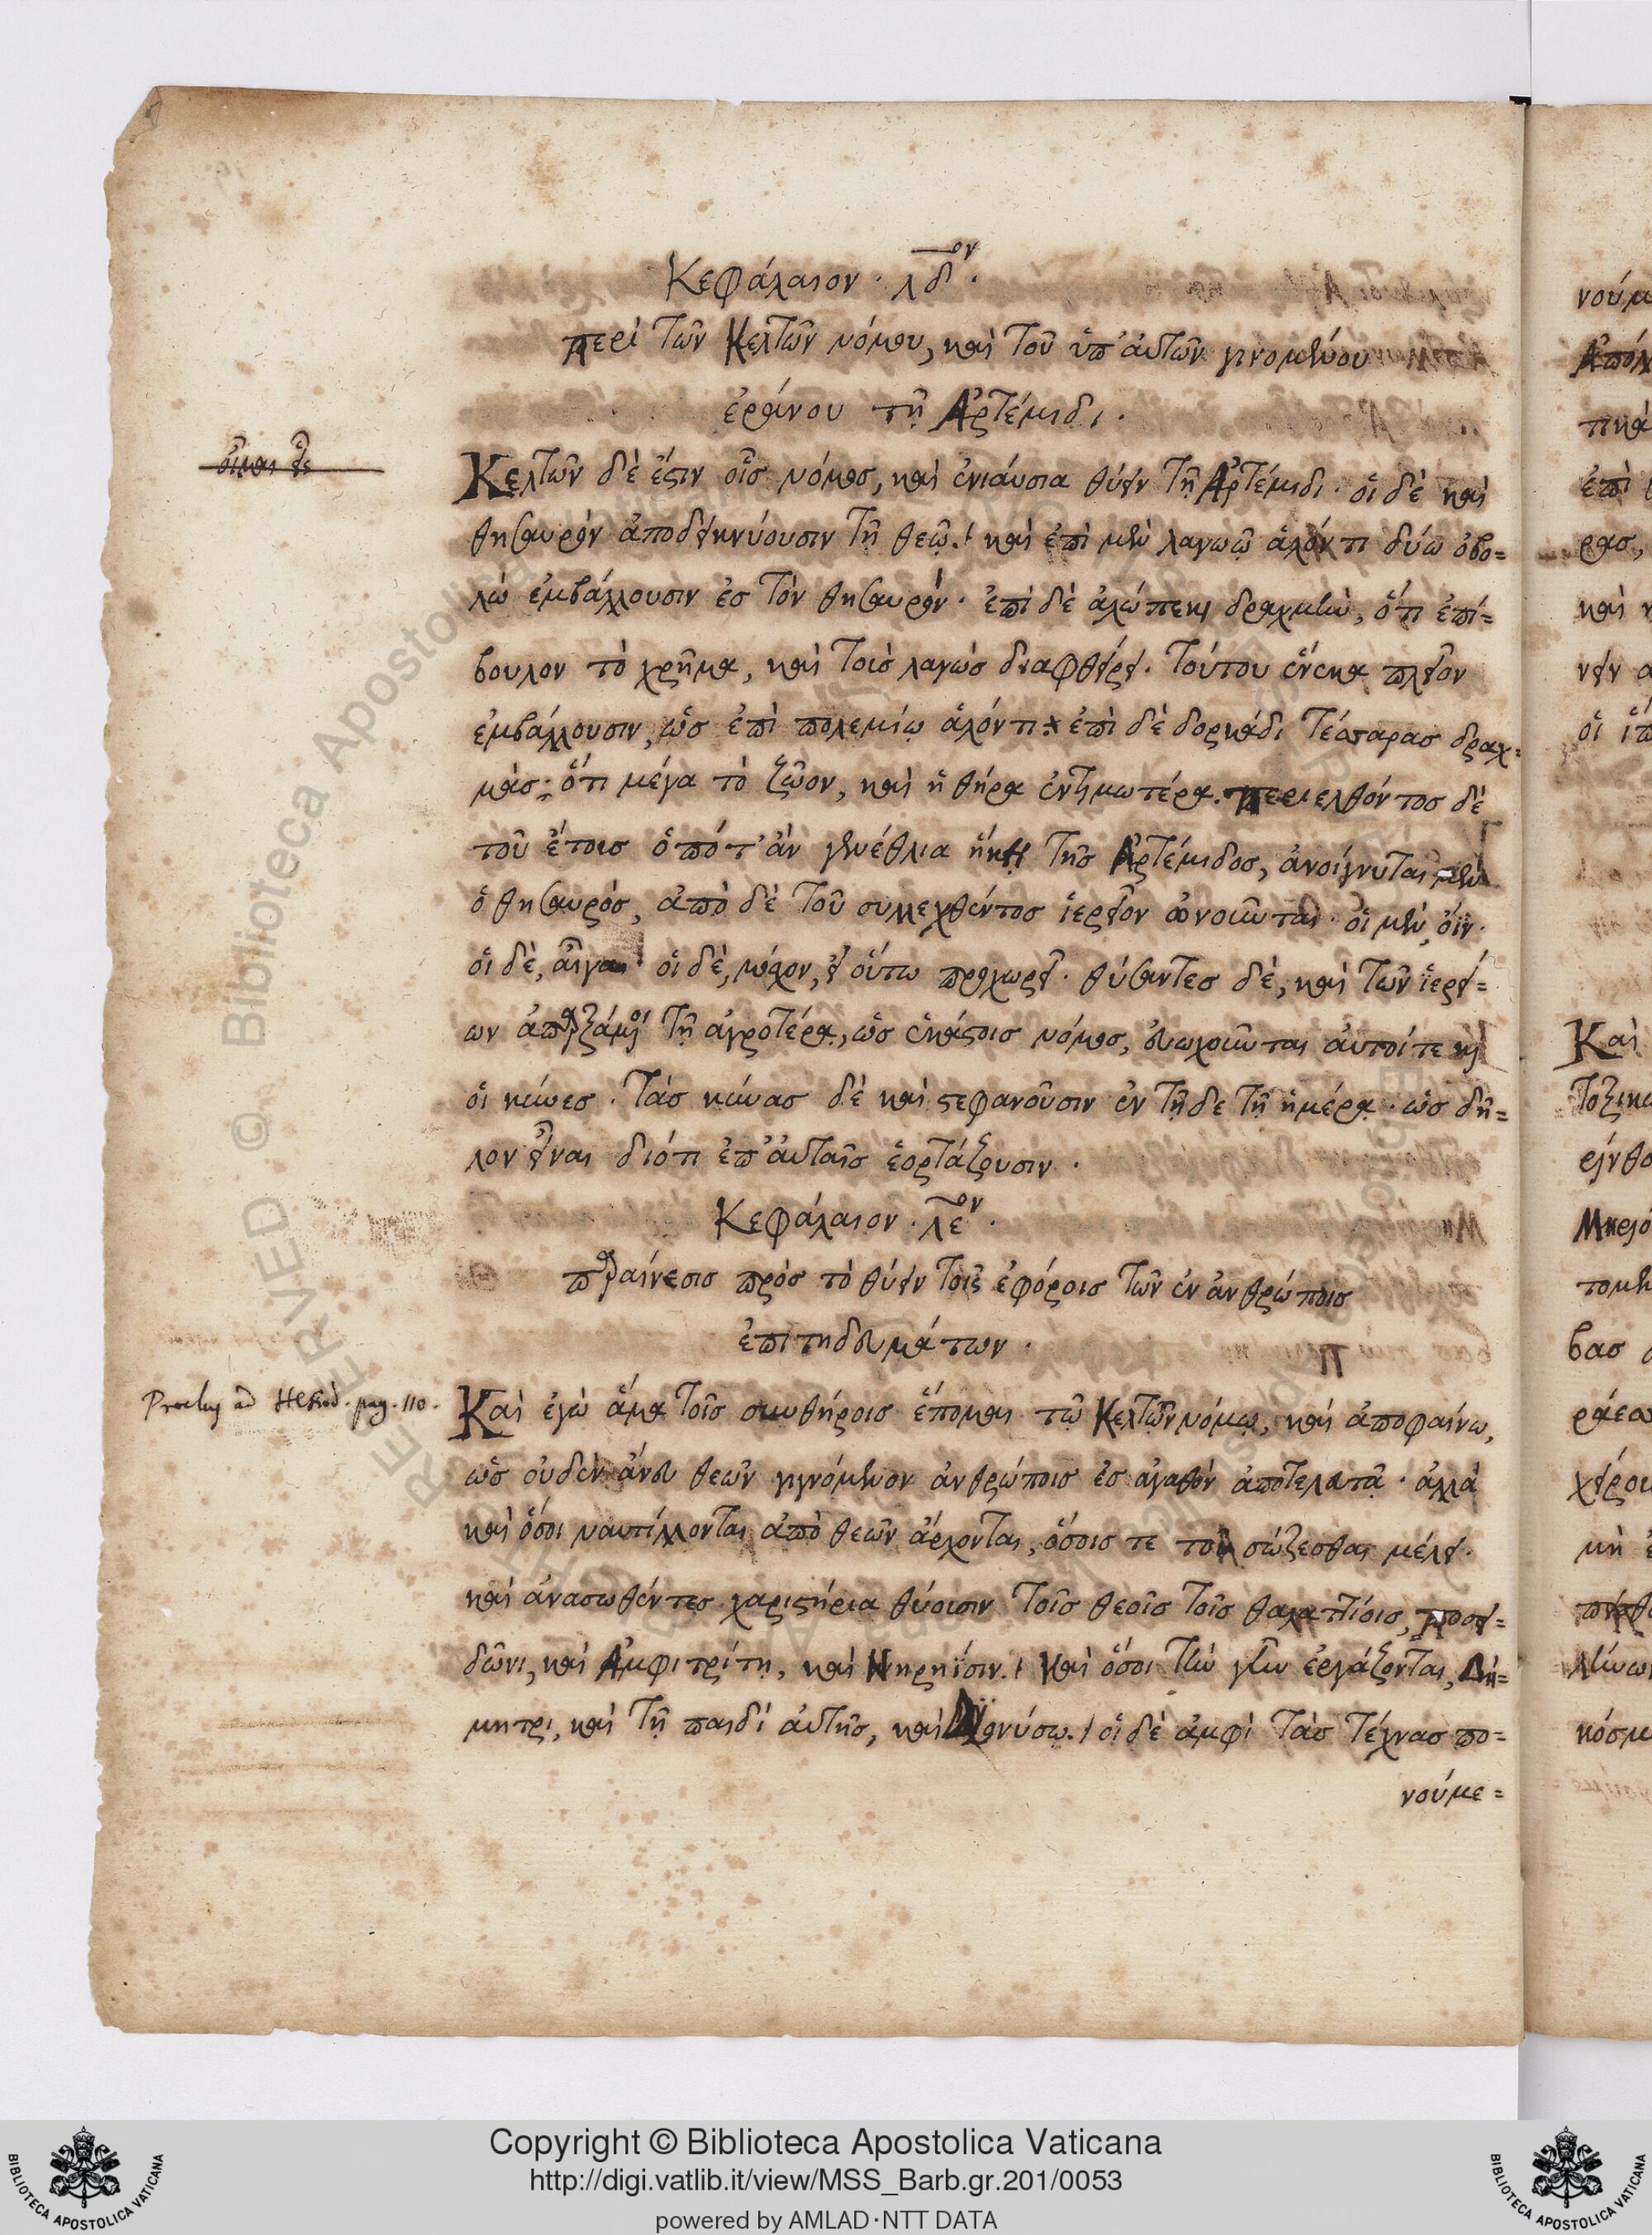 Κεφάλαιον · λδ^ον ·
περὶ τῶν Κελτῶν νόμου, καὶ τοῦ ὑπ' αὐτῶν γινομένου
ἐράνου τῇ Ἀρτέμιδι ·
Κελτῶν δὲ ἔστιν οἷς νόμος, καὶ ἐνιαύσια θύειν τῇ Ἀρτέμιδι · οἱ δὲ καὶ
θησαυρὸν ἀποδεικνύουσιν τῇ θεῷ. καὶ ἐπὶ μὲν λαγωῷ ἁλόντι δύω ὀβο=
λὼ ἐμβάλλουσιν ἐς τὸν θησαυρὸν · ἐπὶ δὲ ἀλώπεκι δραχμὴν, ὅτι ἐπί=
βουλον τὸ χρῆμα, καὶ τοὺς λαγὼς διαφθείρει. τούτου ἕνεκα πλεῖον
ἐμβάλλουσιν, ὡς ἐπὶ πολεμίῳ ἁλόντι · ἐπὶ δὲ δορκάδι τέσσαρας δραχ=
μάς· ὅτι μέγα τὸ ζῶον, καὶ ἡ θήρα ἐντιμωτέρα. περιελθόντος δὲ
τοῦ ἔτους ὁπότ' ἂν γενέθλια ἥκῃ τῆς Ἀρτέμιδος, ἀνοίγνυται μὲν
ὁ θησαυρός, ἀπὸ δὲ τοῦ συλλεχθέντος ἱερεῖον ὠνοῦνται · οἱ μὲν, ὄϊν ·
οἱ δὲ, αἶγα οἱ δὲ, μόσχον, εἰ οὕτω προχωρεῖ · θύσαντες δὲ, καὶ τῶν ἱερεί=
ων ἀπαρξάμενοι τῇ ἀγροτέρᾳ, ὡς ἑκάστοις νόμος, εὐωχοῦνται αὐτοί τε καὶ
οἱ κύνες · τὰς κύνας δὲ καὶ στεφανοῦσιν ἐν τῇδε τῇ ἡμέρᾳ · ὡς δῆ=
λον εἶναι διότι ἐπ' αὐταῖς ἑορτάζουσιν ·
Κεφάλαιον · λε^ον ·
παραίνεσις πρὸς τὸ θύειν τοῖς ἐφόροις τῶν ἐν ἀνθρώποις
ἐπιτηδευμάτων ·
Proclus ad Hesiod. pag. 110.
Καὶ ἐγὼ ἅμα τοῖς συνθήροις ἕπομαι τῷ Κελτῶν νόμῳ, καὶ ἀποφαίνω,
ὡς οὐδὲν ἄνευ θεῶν γιγνόμενον ἀνθρώποις ἐς ἀγαθὸν ἀποτελευτᾷ · ἀλλὰ
καὶ ὅσοι ναυτίλλονται ἀπὸ θεῶν ἄρχονται, ὅσοις τε τοῦ σώζεσθαι μέλει ·
καὶ ἀνασωθέντες χαριστήρια θύουσιν τοῖς θεοῖς τοῖς θαλαττίοις, ποσει=
δῶνι, καὶ Ἀμφιτρίτῃ, καὶ Νηρηΐσιν. καὶ ὅσοι τὴν γῆν ἐργάζονται, Δή=
μητρι, καὶ τῇ παιδὶ αὐτῆς, καὶ Διονύσῳ. οἱ δὲ ἀμφὶ τὰς τέχνας πο=
νούμε=
Copyright © Biblioteca Apostolica Vaticana
http://digi.vatlib.it/view/MSS_Barb.gr.201/0053
powered by AMLAD·NTT DATA